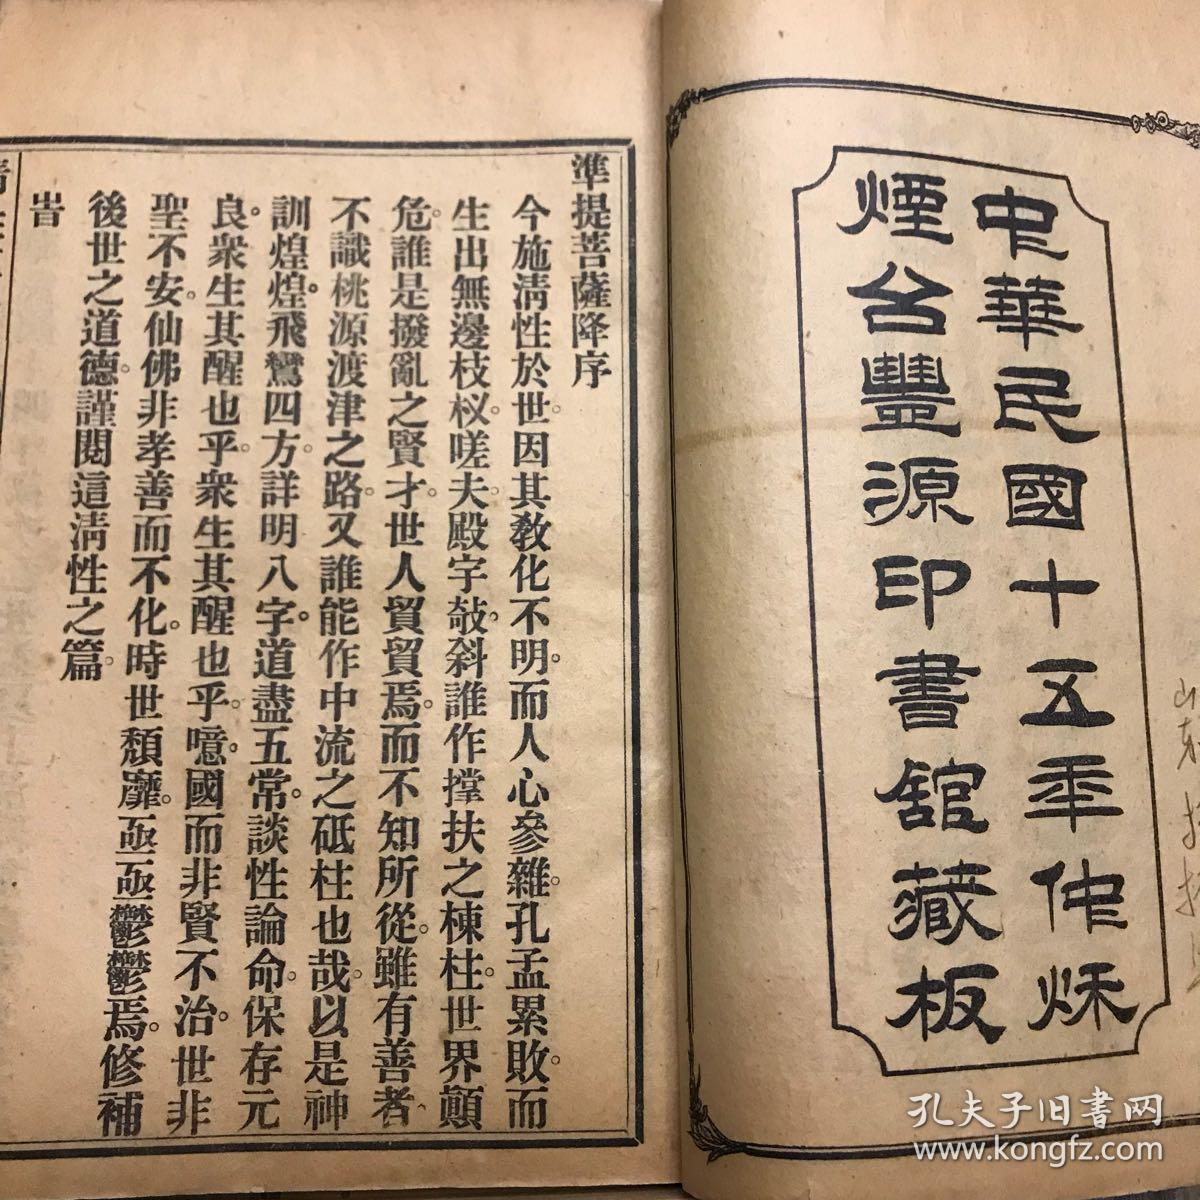 中華民國十五年仲秋
煙台豐源印書館藏板
準提菩薩降序
今施清性於世。因其教化不明。而人心參雜。孔孟累敗。而
生出無邊枝杈。嗟夫殿宇敧斜。誰作撑扶之棟柱。世界顛
危。誰是撥亂之賢才。世人貿貿焉。而不知所從。雖有善者。
不識桃源渡津之路。又誰能作中流之砥柱也哉。以是神
訓煌煌。飛鸞四方。詳明八字。道盡五常。談性論命。保存元
良。衆生其醒也乎。衆生其醒也乎。噫。國而非賢不治。世非
聖不安。仙佛非孝善而不化。時世頹靡。亟亟鬱鬱焉。修補
後世之道德。謹閱這清性之篇。
旹
孔夫子旧書网
www.kongfz.com